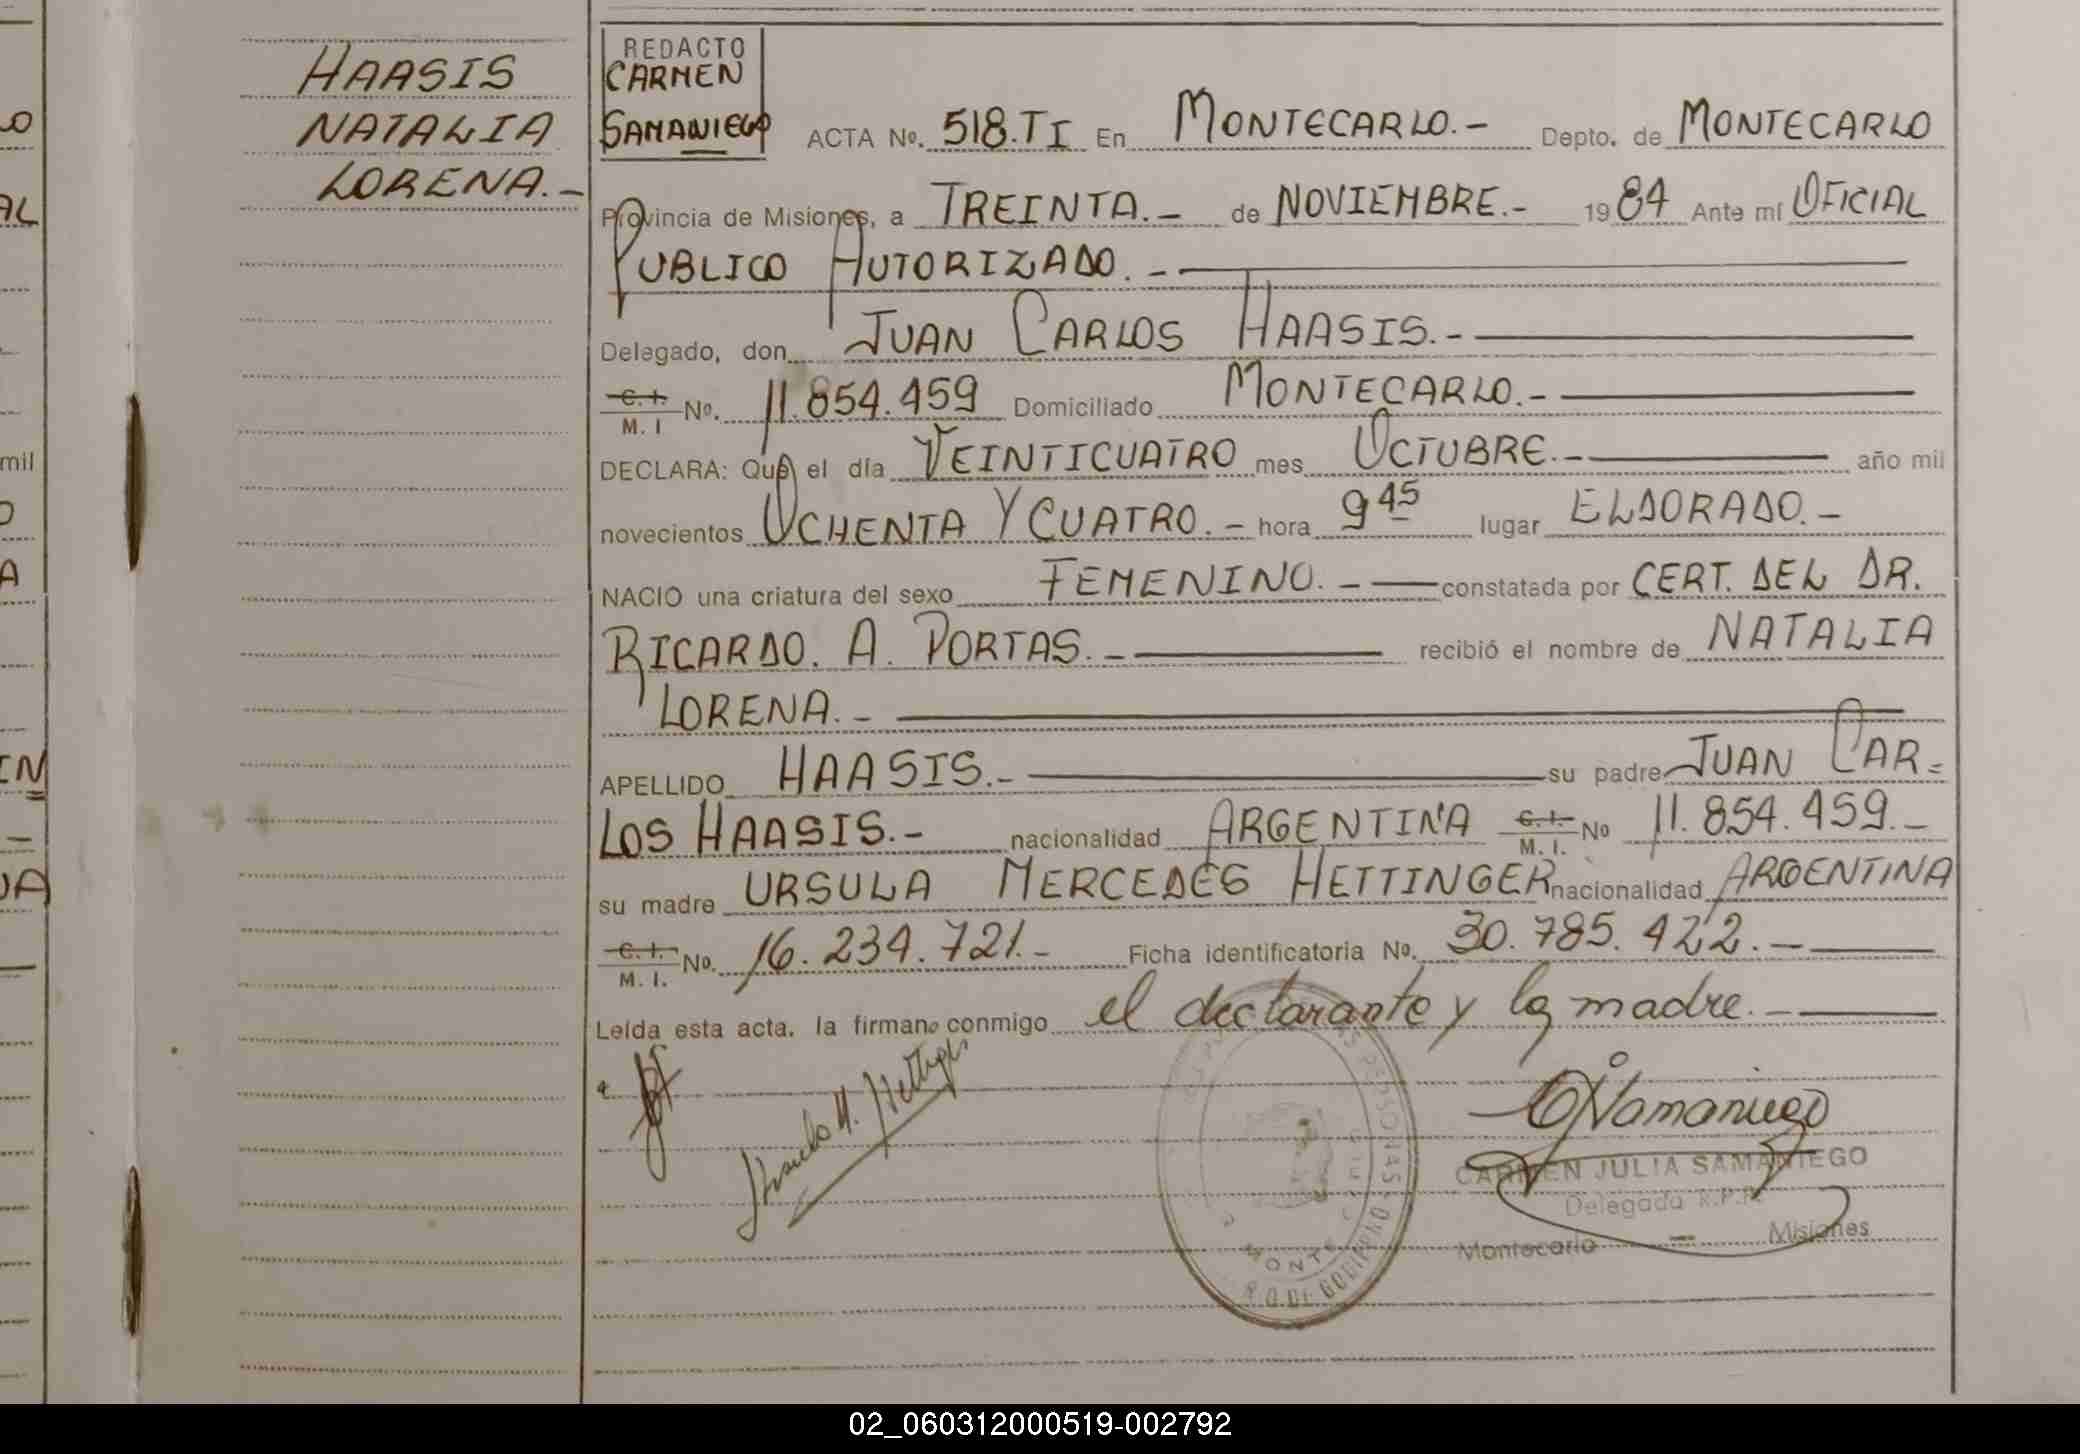 HAASIS
NATALIA
LORENA.-
REDACTO
CARMEN
SAMANIEGO
ACTA No. 518.TI En MONTECARLO.- Depto. de MONTECARLO
Provincia de Misiones, a TREINTA.- de NOVIEMBRE.- 1984 Ante mí OFICIAL
PUBLICO AUTORIZADO.-
Delegado, don JUAN CARLOS HAASIS.-
C. I. No. 11.854.459 Domiciliado MONTECARLO.-
M. I
DECLARA: Que el día VEINTICUATRO mes OCTUBRE.- año mil
novecientos OCHENTA Y CUATRO.- hora 9 45 lugar ELDORADO.-
NACIO una criatura del sexo FEMENINO.- constatada por CERT. DEL DR.
RICARDO. A. PORTAS.- recibió el nombre de NATALIA
LORENA.-
APELLIDO HAASIS.- su padre JUAN CAR=
LOS HAASIS.- nacionalidad ARGENTINA C. I. No 11.854.459.-
M. I.
su madre URSULA MERCEDES HETTINGER nacionalidad ARGENTINA
C. I. No. 16.234.721.- Ficha identificatoria No. 30.785.422.-
M. I.
Leída esta acta, la firman conmigo el declarante y la madre.-
CARMEN JULIA SAMANIEGO
Delegada R.P.P.
Montecarlo - Misiones
02_060312000519-002792